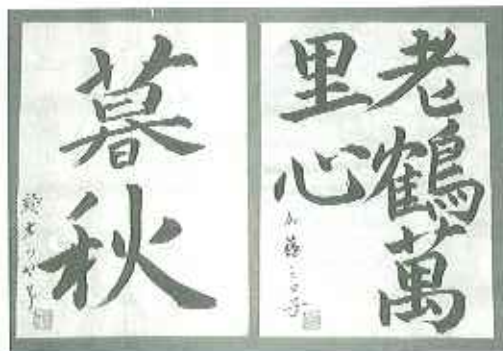 老鶴萬
里心
暮秋